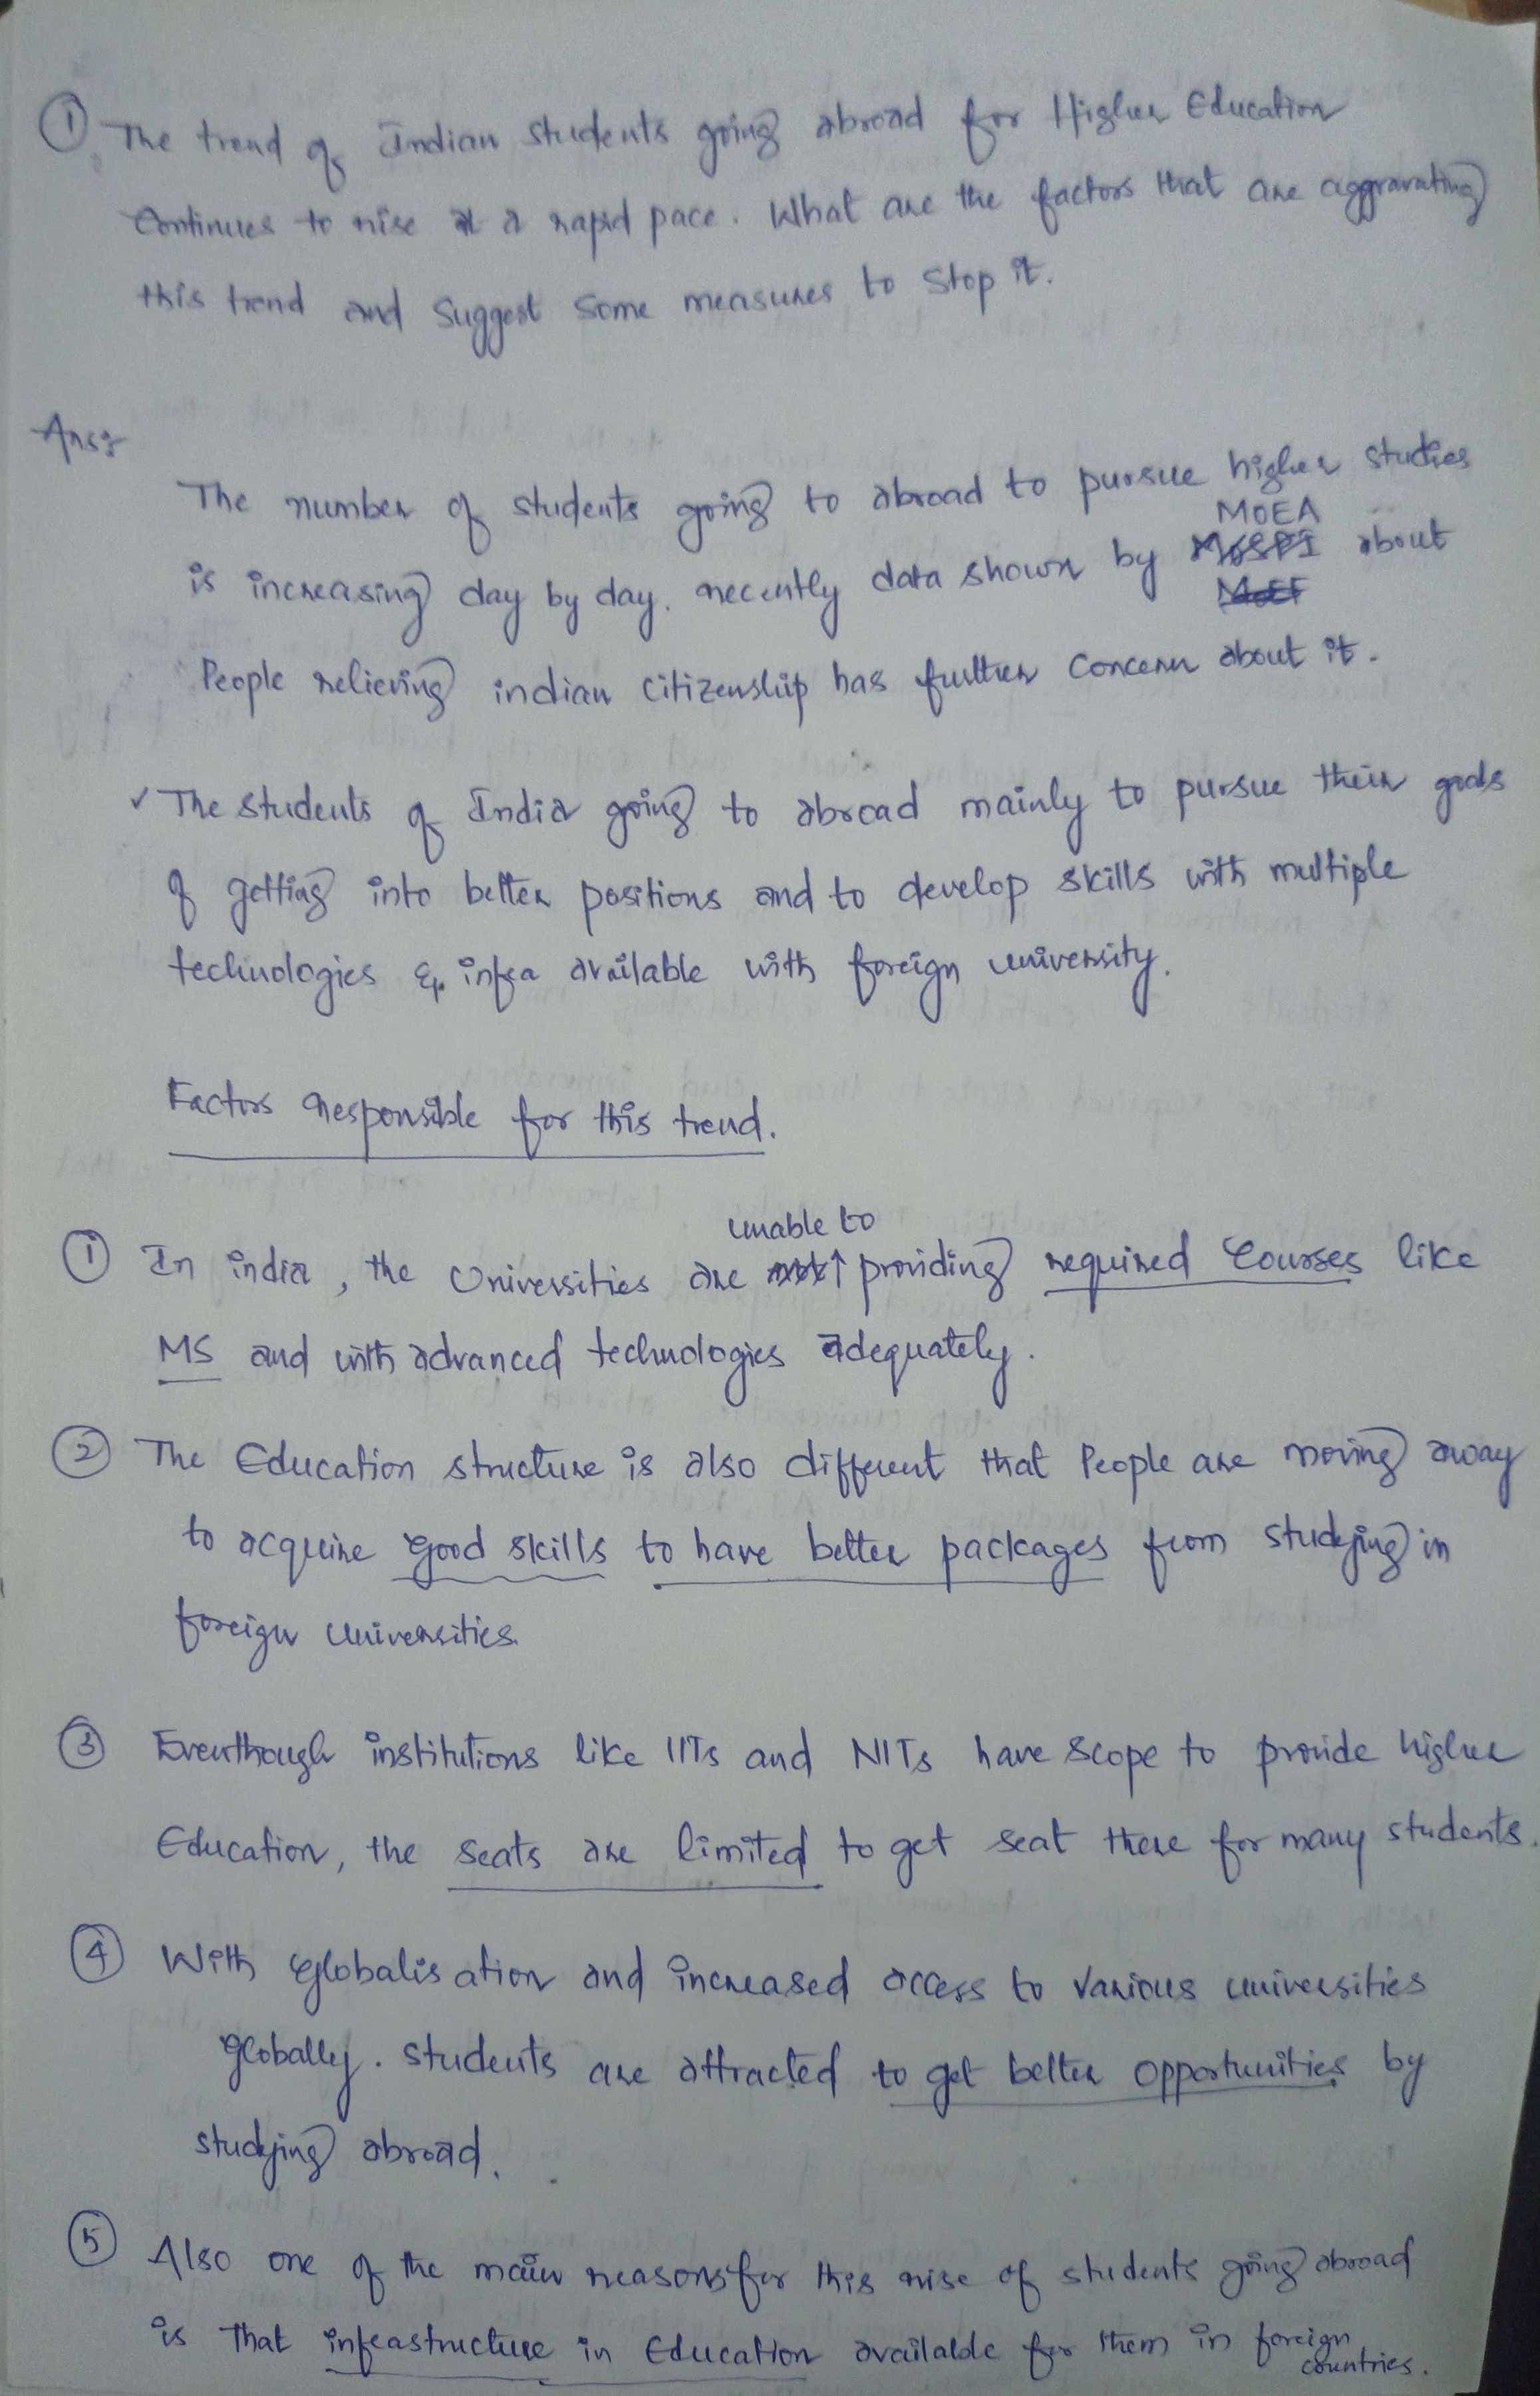 ① The trend of Indian students going abroad for Higher Education
Continues to rise at a rapid pace. What are the factors that are aggravating
this trend and Suggest Some measures to Stop it.
Ans:-
The number of students going to abroad to pursue higher studies
MOEA
is increasing day by day. recently data shown by MOSPI about
MoEF
People relieving indian citizenship has further Concern about it.
✓ The students of India going to abroad mainly to pursue their goals
of getting into better positions and to develop skills with multiple
technologies & infra available with foreign university.
Factors responsible for this trend.
unable to
① In india, the Universities are not ↑ providing required Courses like
MS and with advanced technologies adequately.
② The Education structure is also different that People are moving away
to acquire good skills to have better packages from studying in
foreign universities.
③ Eventhough institutions like IITs and NITs have scope to provide higher
Education, the seats are limited to get seat there for many students.
④ With Globalisation and increased access to various universities
globally. students are attracted to get better opportunities by
studying abroad.
⑤ Also one of the main reasons for this rise of students going abroad
is that infrastructure in Education available for them in foreign
countries.